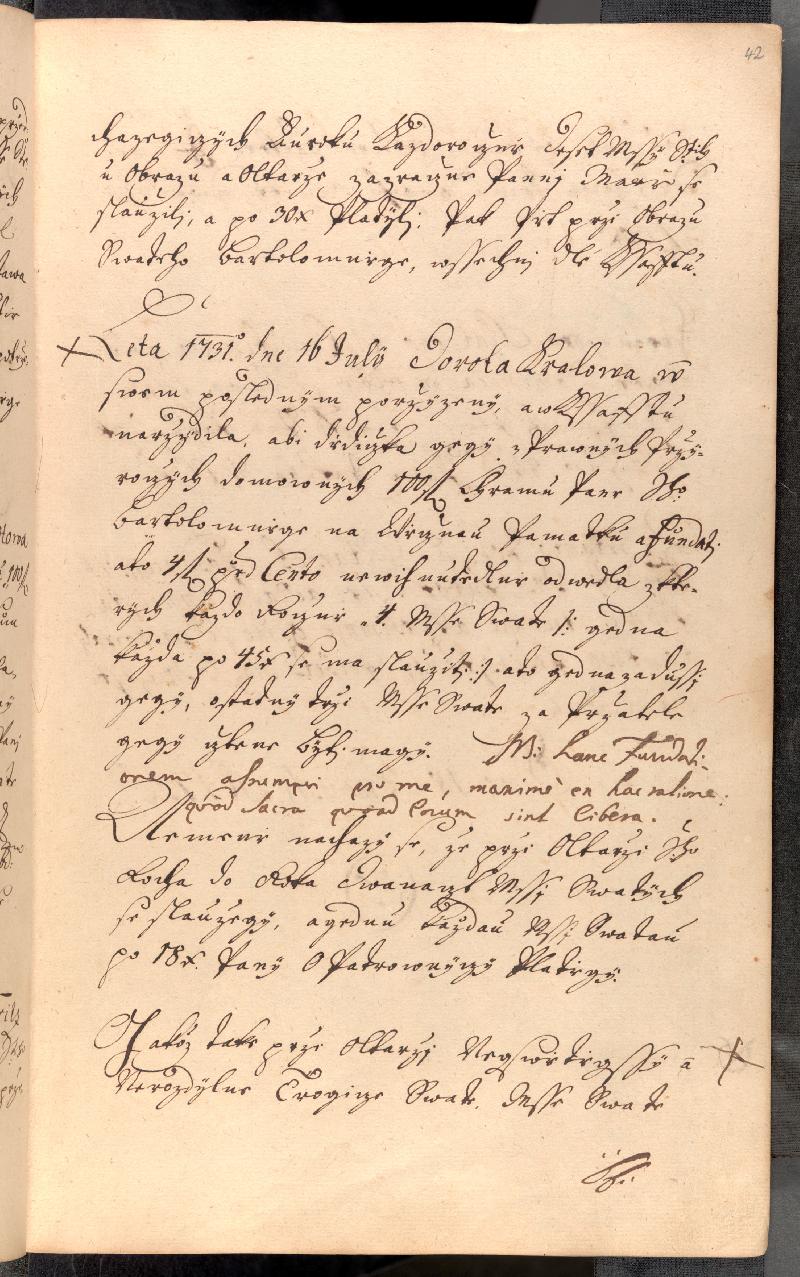 42
chazegiczych Aurokú Każdorocznie Dcset Mssy Stich
u Obrazu a Olkarże zazraczne Panny Marie se
slaużili, a po 30x platyly: Pak Pět przi Obrazu
Swateho Bartolomiege, wssechny dle Kssafftu.
Leta 1731. dne 16 July Dorota Kralowa w
swem poslednym porżyzeny, a w Kssafftu
narżydila, abi dědiczka gegy z Prawnych Przy-
rozych domownych 100 f Chramu Panie Sho
Bartolomiege na Wiecznau Pamatku a Fundati
ato 4 f pr Cento newihnutedlnie odwedla z kte-
rych każdo Roczně 4. Msse Swate /: gedna
każda po 45x se ma slaużiti :/ ato gedna za dussi
gegy, ostatny trzi Msse Swate za Przatele
gegy cztene byti magy. NB: hanc Fundati-
onem assumpsi pro me, maxime ex hac ratione:
quod Sacra quoad locum sint libera.
Nemenie nachazy se, że przi Oltarzi Sho
Rocha do Roka Dwanaczt Mssi Swatych
se slaużegy, a gednu każdau Mssi Swatau
po 18x. Pany Opatrownyczy Platiegy.
Jakoż take przi Oltarzi Negswětiegssy a
Nerozdylne Trogicze Swate, Msse Swate